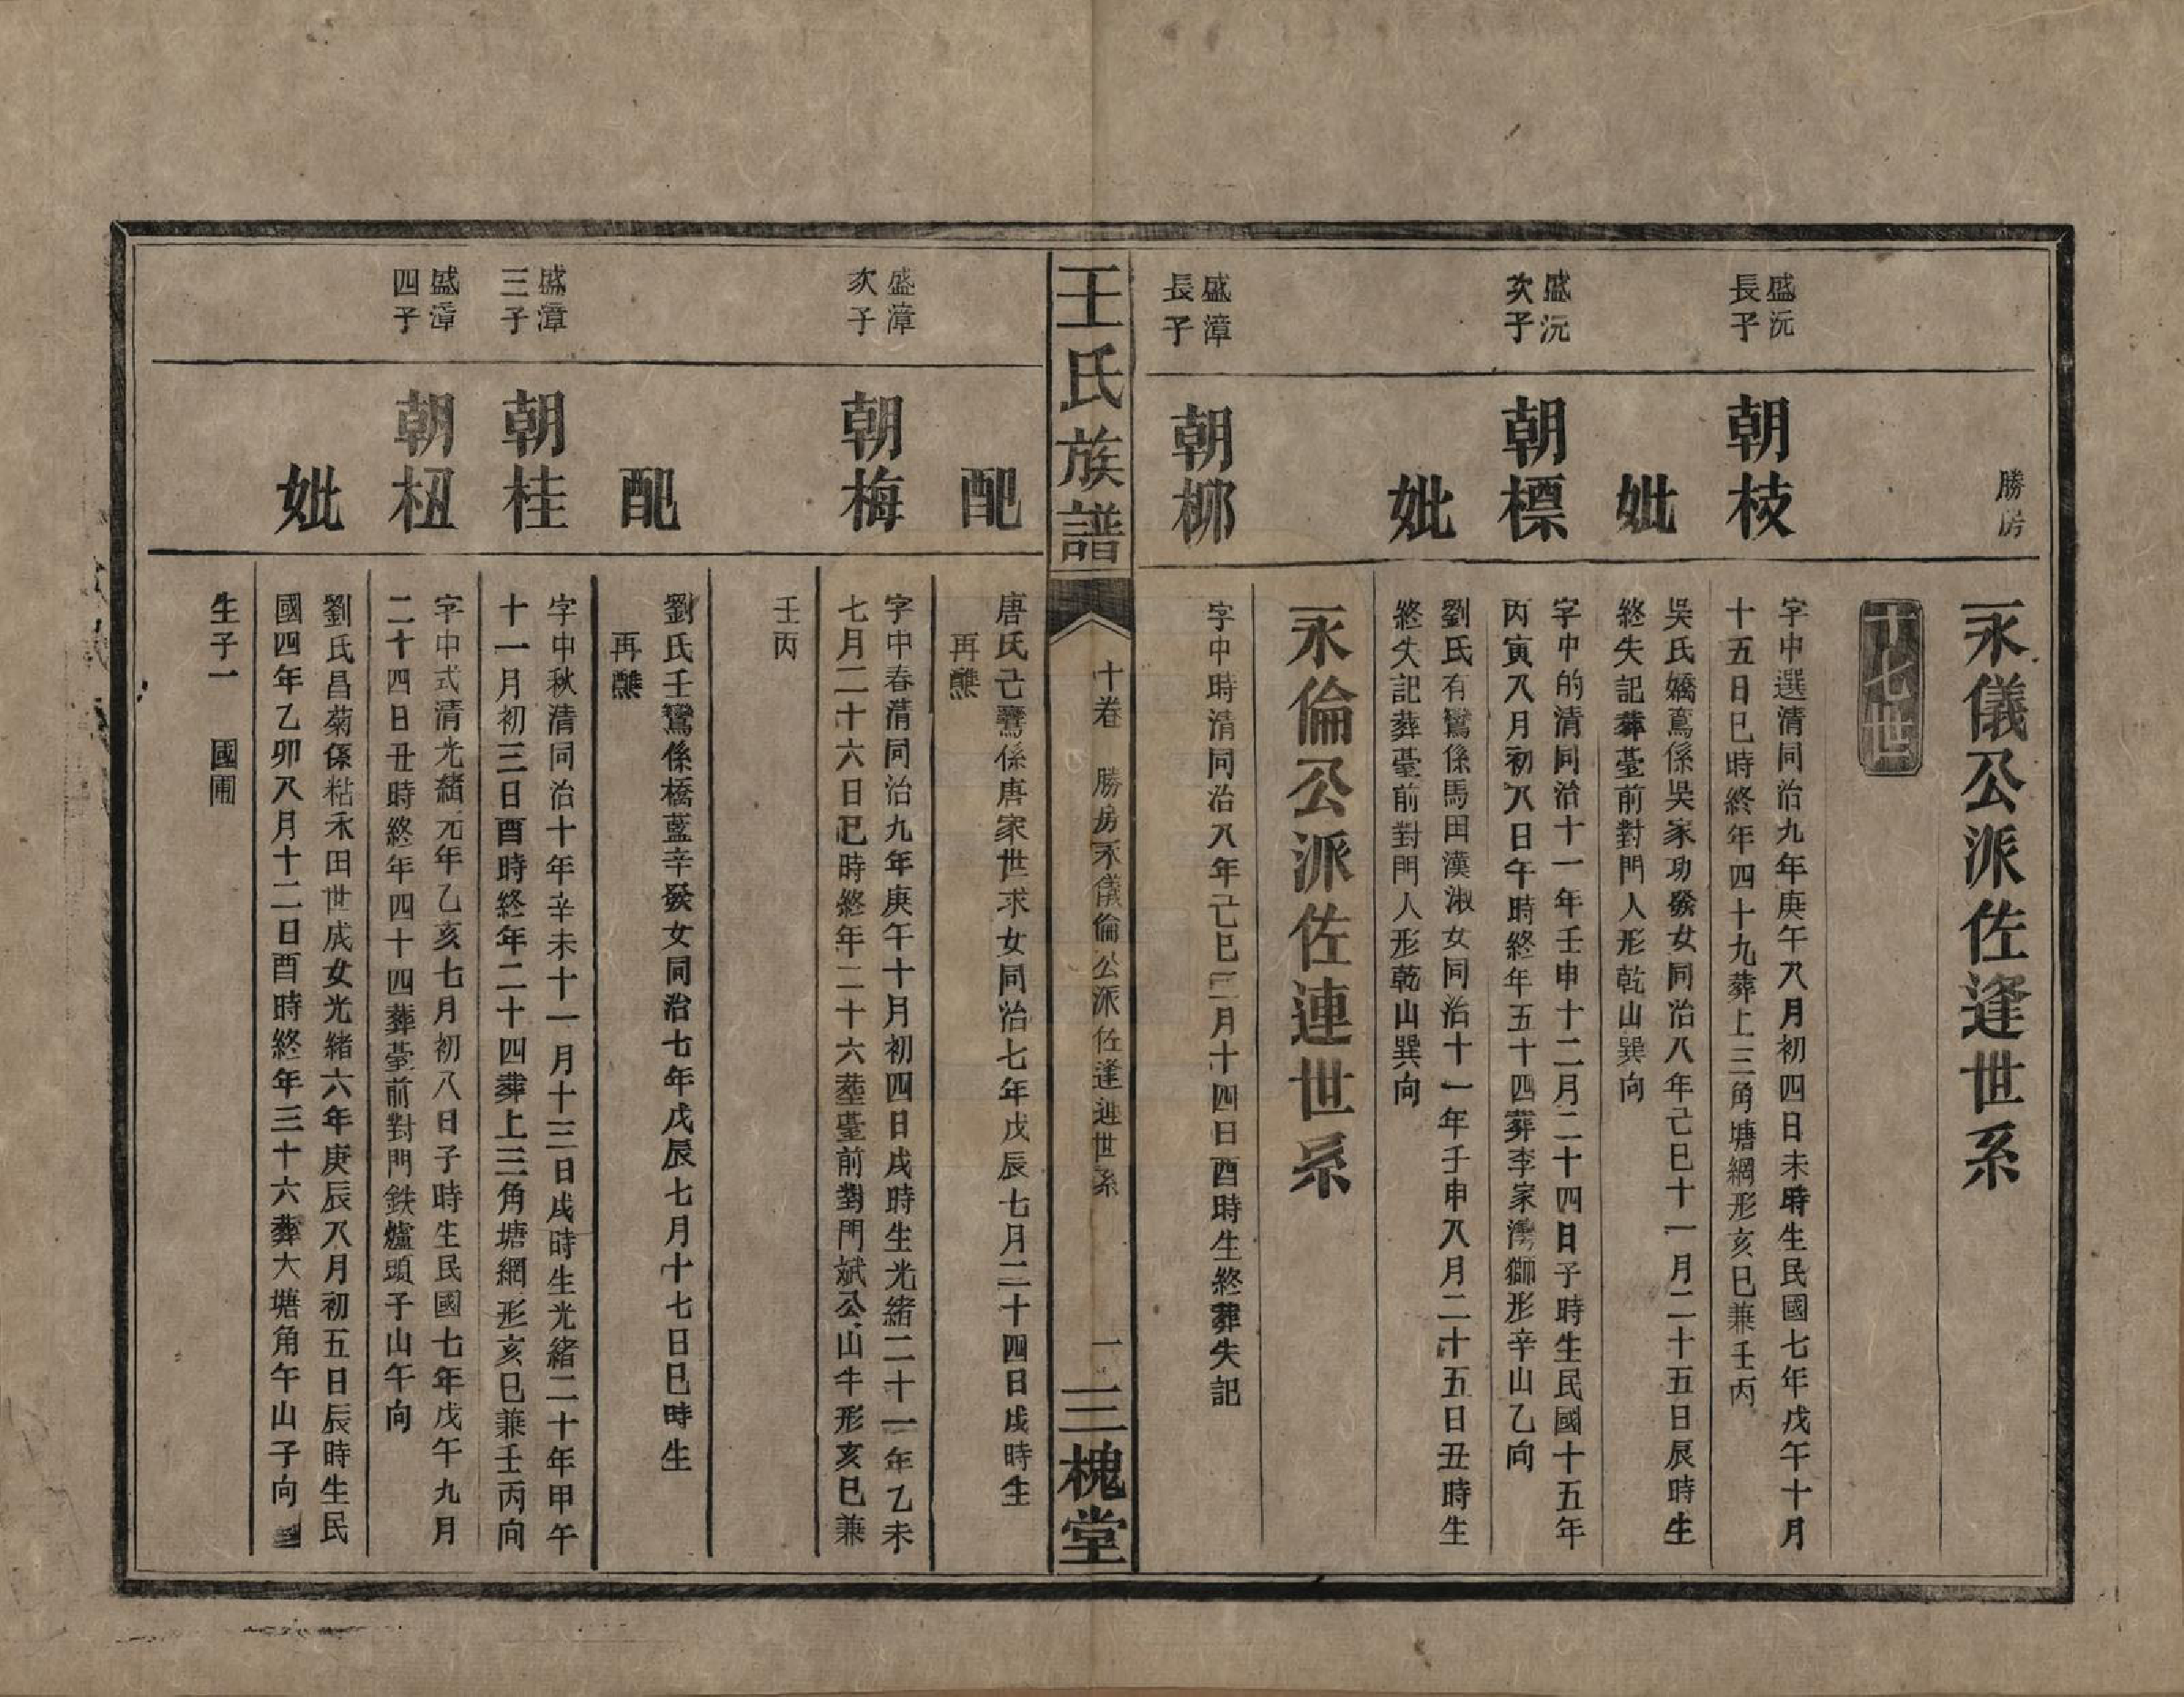 勝房
永儀公派佐逢世系
十七世
盛沅
長子
朝枝
字中選清同治九年庚午八月初四日未時生民國七年戊午十月
十五日巳時終年四十九葬上三角塘網形亥巳兼壬丙
妣
吳氏嬌鳶係吳家功發女同治八年己巳十一月二十五日辰時生
終失記葬臺前對門人形乾山巽向
盛沅
次子
朝標
字中的清同治十一年壬申十二月二十四日子時生民國十五年
丙寅八月初八日午時終年五十四葬李家灣獅形辛山乙向
妣
劉氏有鸞係馬田漢淑女同治十一年壬申八月二十五日丑時生
終失記葬臺前對門人形乾山巽向
永倫公派佐連世系
盛漳
長子
朝柳
字中時清同治八年己巳二月十四日酉時生終葬失記
王氏族譜
十卷 勝房永儀倫公派佐逢連世系
一
三槐堂
配
唐氏己鸞係唐家世求女同治七年戊辰七月二十四日戌時生
再醮
盛漳
次子
朝梅
字中春清同治九年庚午十月初四日戌時生光緒二十一年乙未
七月二十六日巳時終年二十六葬臺前對門斌公山牛形亥巳兼
壬丙
配
劉氏壬鸞係橋藍辛發女同治七年戊辰七月十七日巳時生
再醮
盛漳
三子
朝桂
字中秋清同治十年辛未十一月十三日戌時生光緒二十年甲午
十一月初三日酉時終年二十四葬上三角塘網形亥巳兼壬丙向
盛漳
四子
朝杻
字中式清光緒元年乙亥七月初八日子時生民國七年戊午九月
二十四日丑時終年四十四葬臺前對門鉄爐頭子山午向
妣
劉氏昌菊係粘禾田世成女光緒六年庚辰八月初五日辰時生民
國四年乙卯八月十二日酉時終年三十六葬大塘角午山子向
生子一 國圃